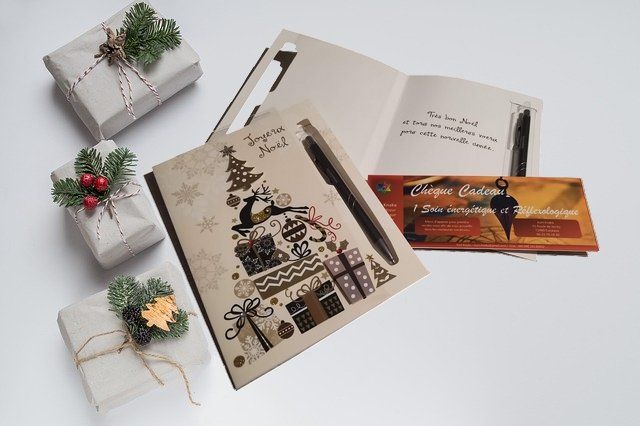 Joyeux
Noël
Très bon Noël
et tous nos meilleurs voeux
pour cette nouvelle année.
Chèque Cadeau
1 Soin énergétique et Réflexologique